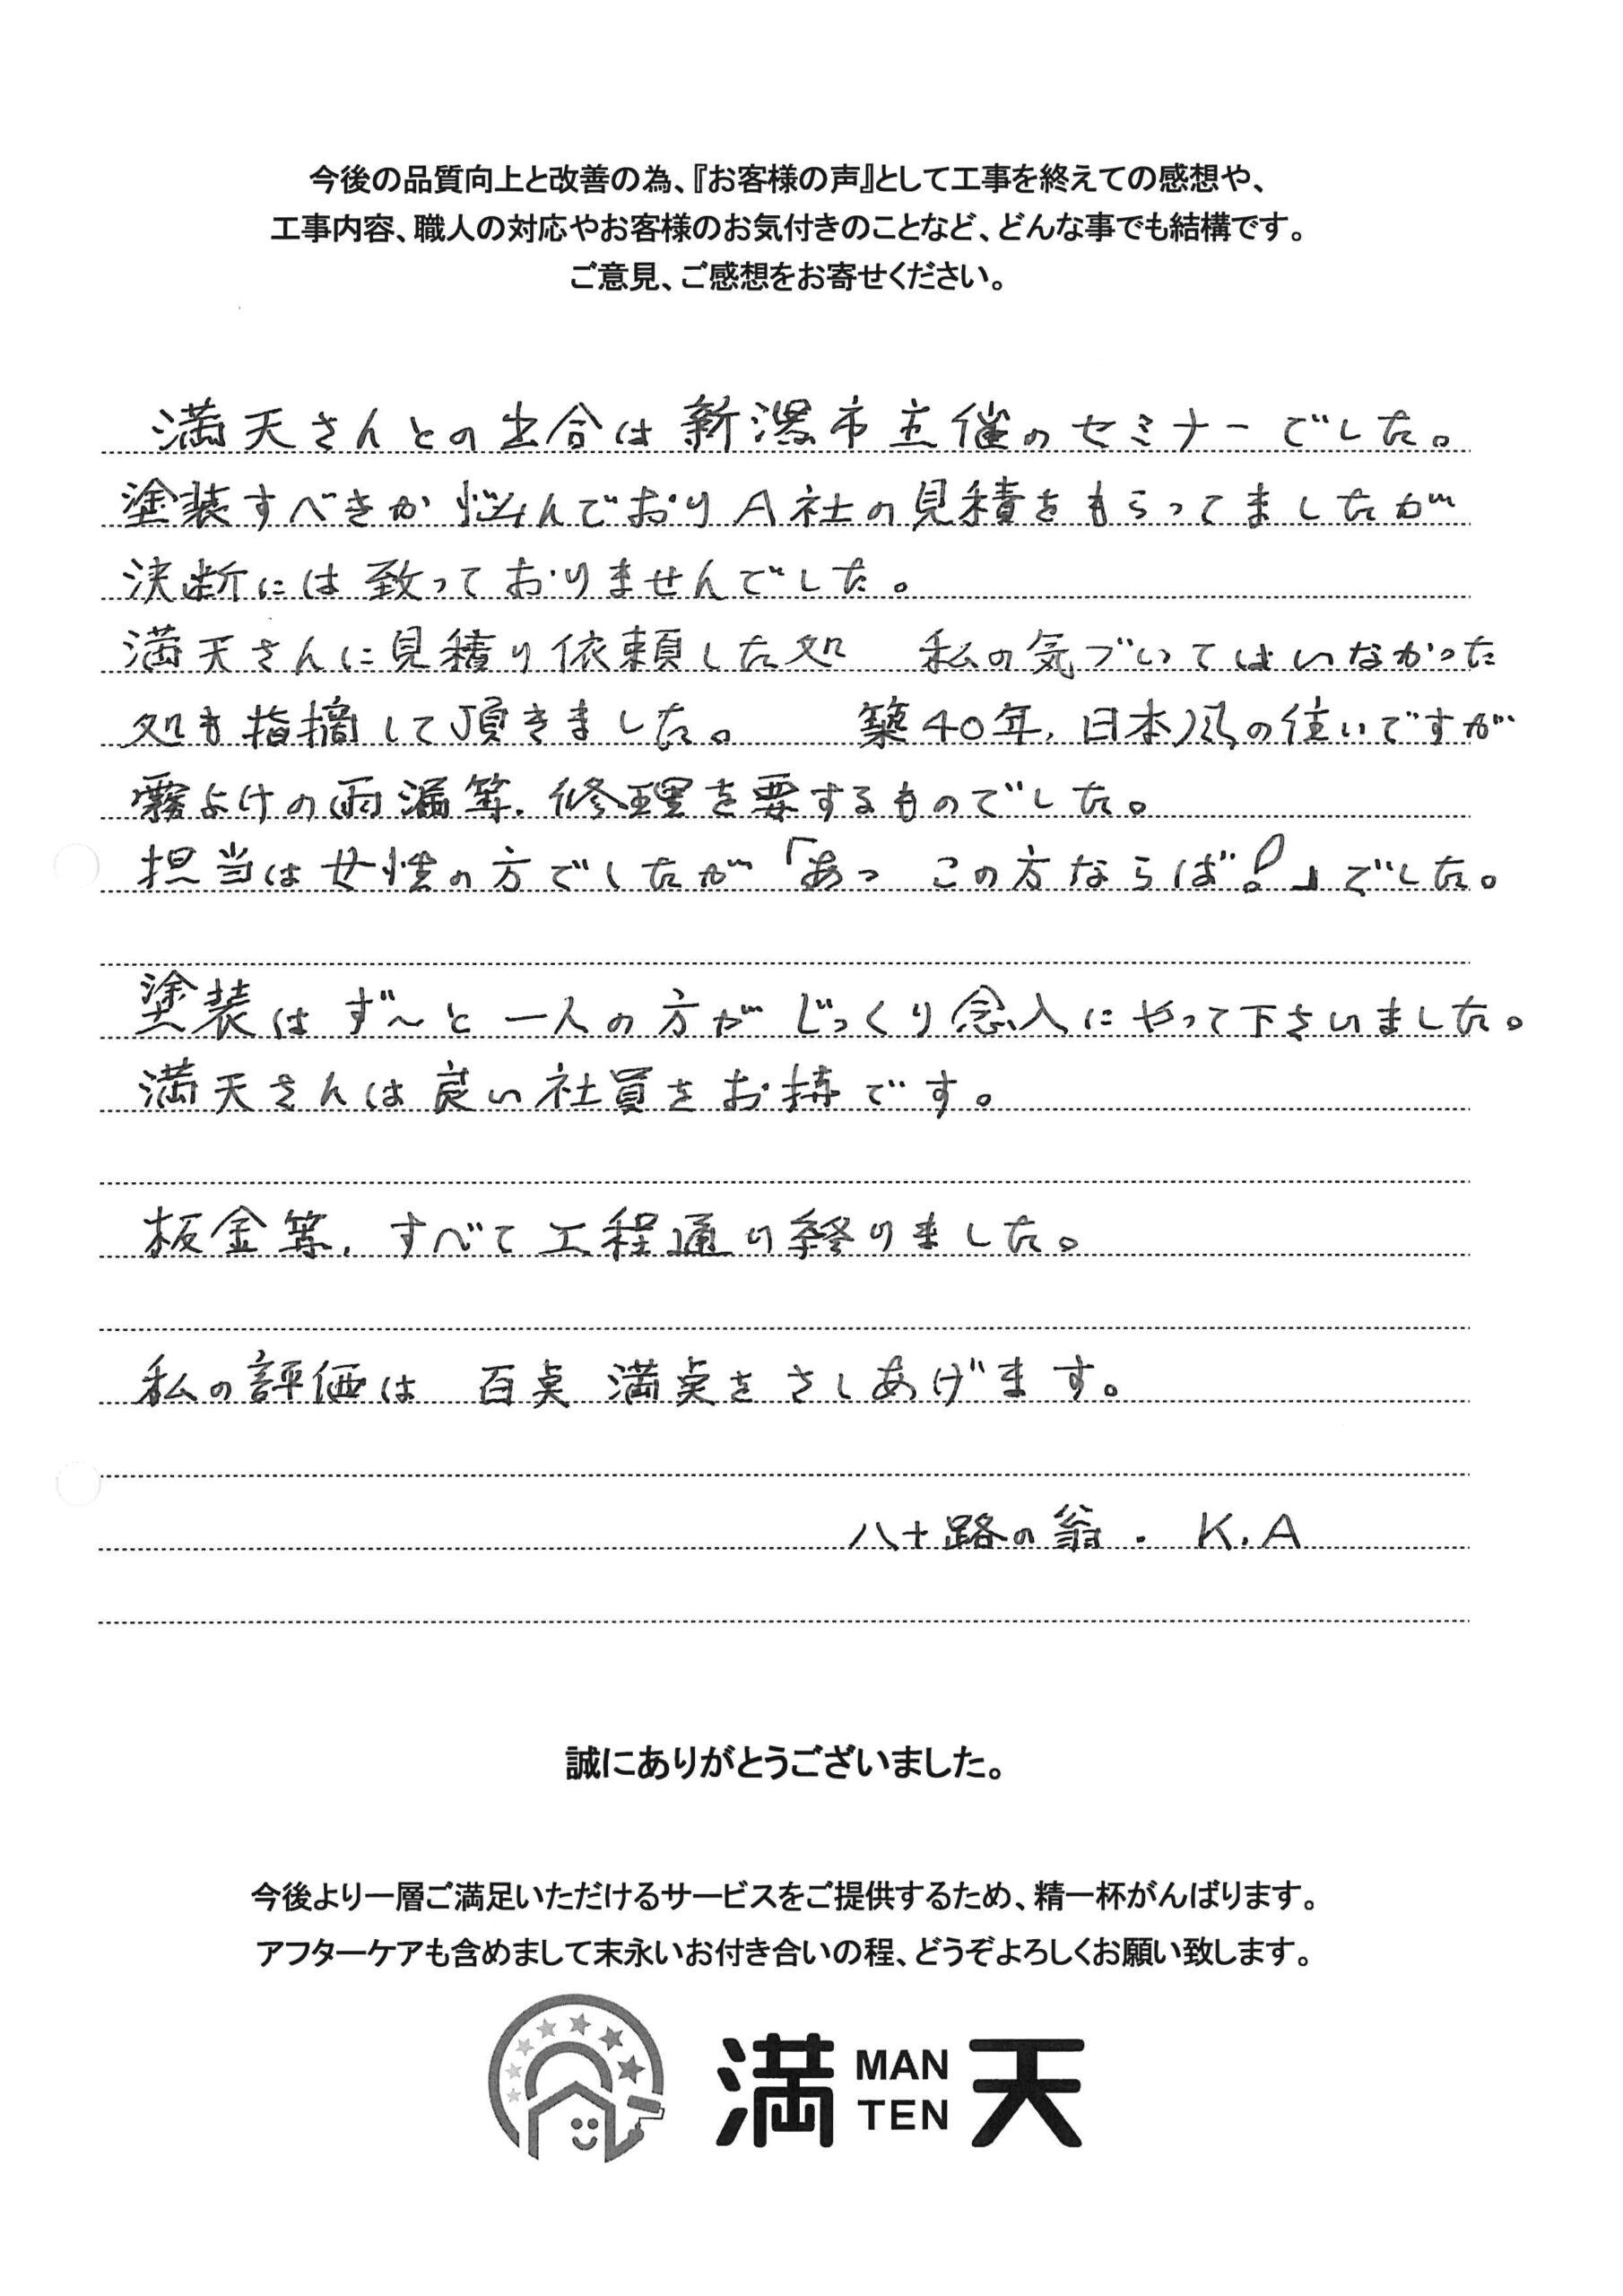 今後の品質向上と改善の為、『お客様の声』として工事を終えての感想や、
工事内容、職人の対応やお客様のお気付きのことなど、どんな事でも結構です。
ご意見、ご感想をお寄せください。
満天さんとの出合は新潟市主催のセミナーでした。
塗装すべきか悩んでおりA社の見積をもらってましたが
決断には致っておりませんでした。
満天さんに見積り依頼した処 私の気づいてはいなかった
処も指摘して頂きました。 築40年、日本風の住いですが
霧よけの雨漏等、修理を要するものでした。
担当は女性の方でしたが「あっ この方ならば!」でした。
塗装はず〜と一人の方がじっくり念入にやって下さいました。
満天さんは良い社員をお持です。
板金等、すべて工程通り終りました。
私の評価は 百点 満点をさしあげます。
八十路の翁. K.A
誠にありがとうございました。
今後より一層ご満足いただけるサービスをご提供するため、精一杯がんばります。
アフターケアも含めまして末永いお付き合いの程、どうぞよろしくお願い致します。
満 MAN TEN 天